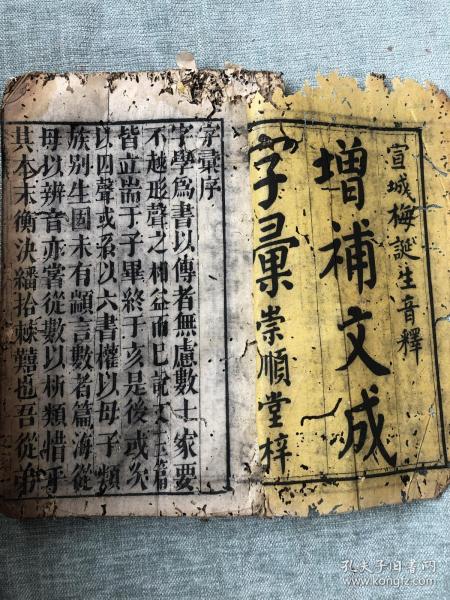 宣城梅誕生音釋
增補文成
字彙崇順堂梓
字彙序
字學爲書以傳者無慮數十家要
不越形聲之相益而已說文玉篇
皆立耑于子畢終于亥是後或次
以四聲或系以六書權以母子類
族别生固未有顓言數者篇海從
母以辨音亦嘗從數以析類惜乎
其本末衡決繙拾棘囏也吾從弟
孔夫子旧书网
www.kongfz.com